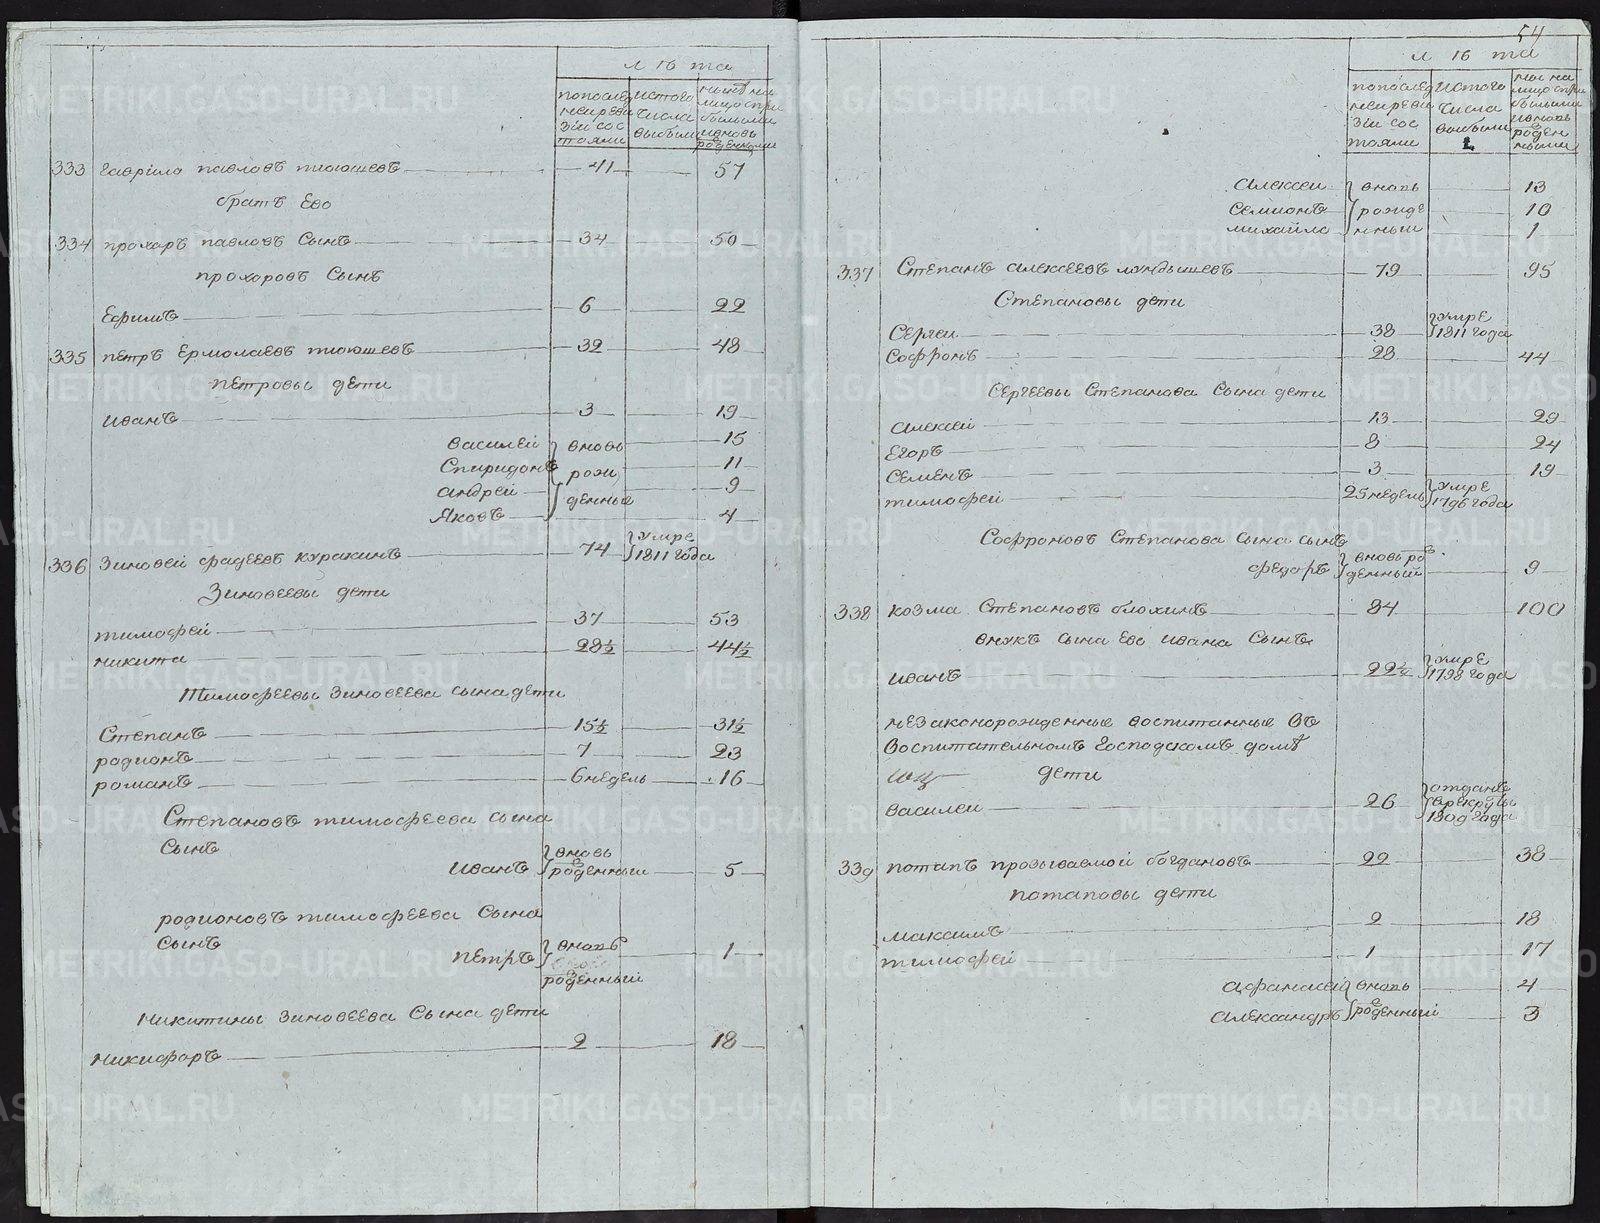 лѣта
попослед нѣй ревизіи состояли
изтого числа выбыли
нынѣ на лицо спри былыми и вновь рожденными
333 гаврiило павловъ тиюшевъ 41 57
братъ Его
334 прохоръ павловъ Сынъ 34 50
прохоровъ Сынъ
Ефимъ 6 22
335 петръ Ермолаевъ тиюшевъ 32 48
петровы дети
иванъ 3 19
василей вновь 15
Спиридонъ рож 11
андрей денные 9
Яковъ 4
336 Зиновей фадеевъ куракинъ 74 умре 1811 года
Зиновеевы дети
тимофей 37 53
никита 28½ 44½
Тимофеевы Зиновеева сына дети
Степанъ 15½ 31½
родионъ 7 23
романъ 6 недель 16
Степановъ тимофеева сына
сынъ
иванъ вновь рожденный 5
родионовъ тимофеева Сына
сынъ
петръ вновь рожденный 1
Никитины Зиновеева Сына дети
никифоръ 2 18
54
лѣта
попослед нѣй ревизіи состояли
изтого числа выбыли
нынѣ на лицо спри былыми и вновь рожденными
алексеи вновь 13
семионъ рожде 10
михайло нный 1
337 Степанъ алексеевъ лундышевъ 79 95
Степановы дети
Сергеи 38 умре 1811 года
Софронъ 28 44
Сергеевы Степанова Сына дети
алексей 13 29
Егоръ 8 24
Семенъ 3 19
тимофей 25 недель умре 1796 года
Софроновъ Степанова Сына сынъ
федоръ вновь рожденный 9
338 козма Степановъ блохинъ 84 100
внукъ сына Ево ивана Сынъ
иванъ 22½ умре 1798 года
незаконорожденные воспитанные Въ
Воспитательномъ господскомъ домѣ
дети
василеи 26 отданъ врекруты 1809 года
339 потапъ прозываемой богдановъ 22 38
потаповы дети
максимъ 2 18
тимофей 1 17
афанасей вновь 4
александръ рожденный 3
METRIKI.GASO-URAL.RU